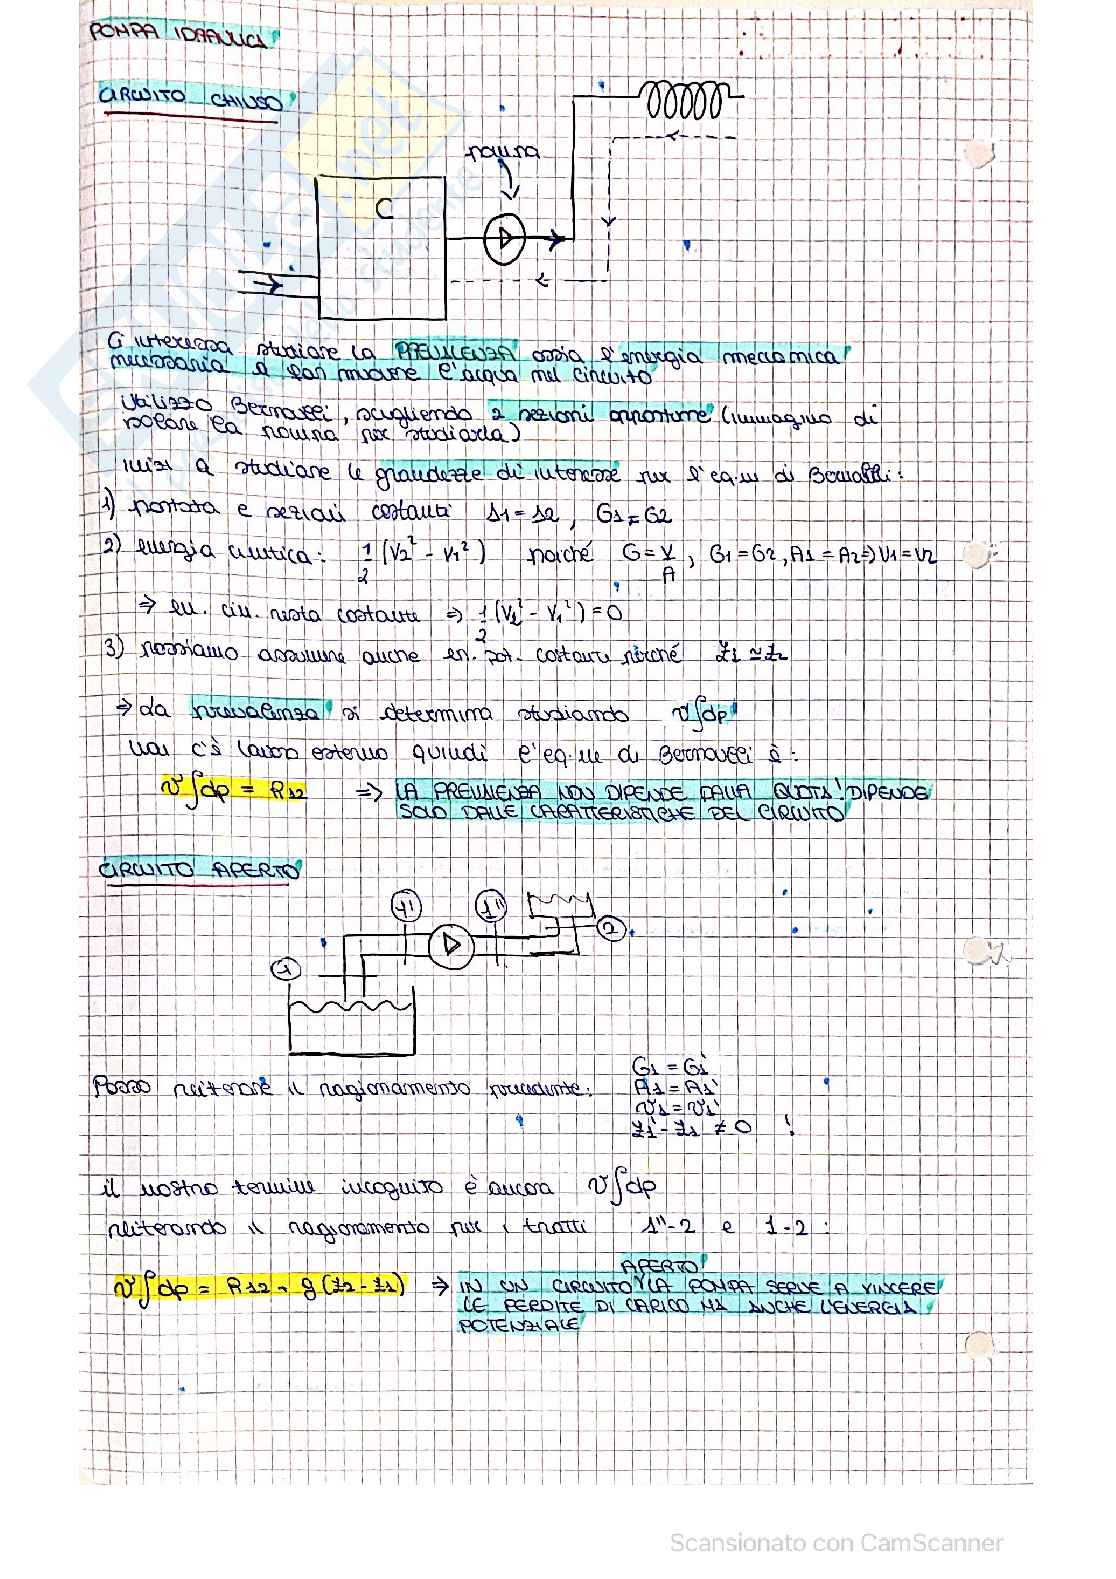 POMPA IDRAULICA
CIRCUITO CHIUSO
pompa
C
Ci interessa studiare la PREVALENZA ossia l'energia meccanica
necessaria a far muovere l'acqua nel circuito
Utilizzo Bernoulli, scegliendo 2 sezioni opportune (immagino di
isolare la pompa per studiarla)
inizi a studiare le grandezze di interesse per l'eq.ne di Bernoulli:
1) portata e sezioni costanti A1 = A2, G1 = G2
2) energia cinetica: 1/2 (V2² - V1²) poiché G = V/A, G1 = G2, A1 = A2 => V1 = V2
=> en. cin. resta costante => 1/2 (V2² - V1²) = 0
3) possiamo assumere anche en. pot. costante poiché z1 ≃ z2
=> la prevalenza si determina studiando v∫dp
c'è lavoro esterno quindi l'eq.ne di Bernoulli è:
v∫dp = R12 => LA PREVALENZA NON DIPENDE DALLA QUOTA! DIPENDE
SOLO DALLE CARATTERISTICHE DEL CIRCUITO
CIRCUITO APERTO
1' 1" 2
1
Posso reiterare il ragionamento precedente: G1 = G1'
A1 = A1'
v1 = v1'
z1' - z1 ≠ 0 !
il nostro termine incognito è ancora v∫dp
reiterando il ragionamento per i tratti 1"-2 e 1-2:
v∫dp = R12 + g(z2 - z1) => IN UN CIRCUITO APERTO LA POMPA SERVE A VINCERE
LE PERDITE DI CARICO MA ANCHE L'ENERGIA
POTENZIALE
Scansionato con CamScanner